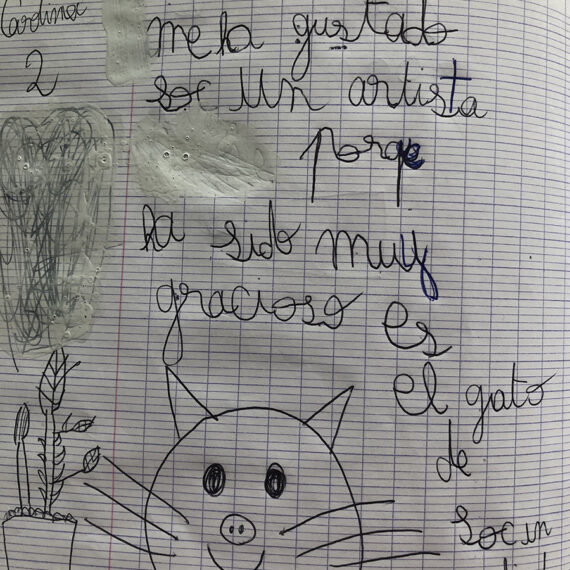 2
me ha gustado
soc un artista
porqe
ha sido muy
gracioso es
el gato
de
socin